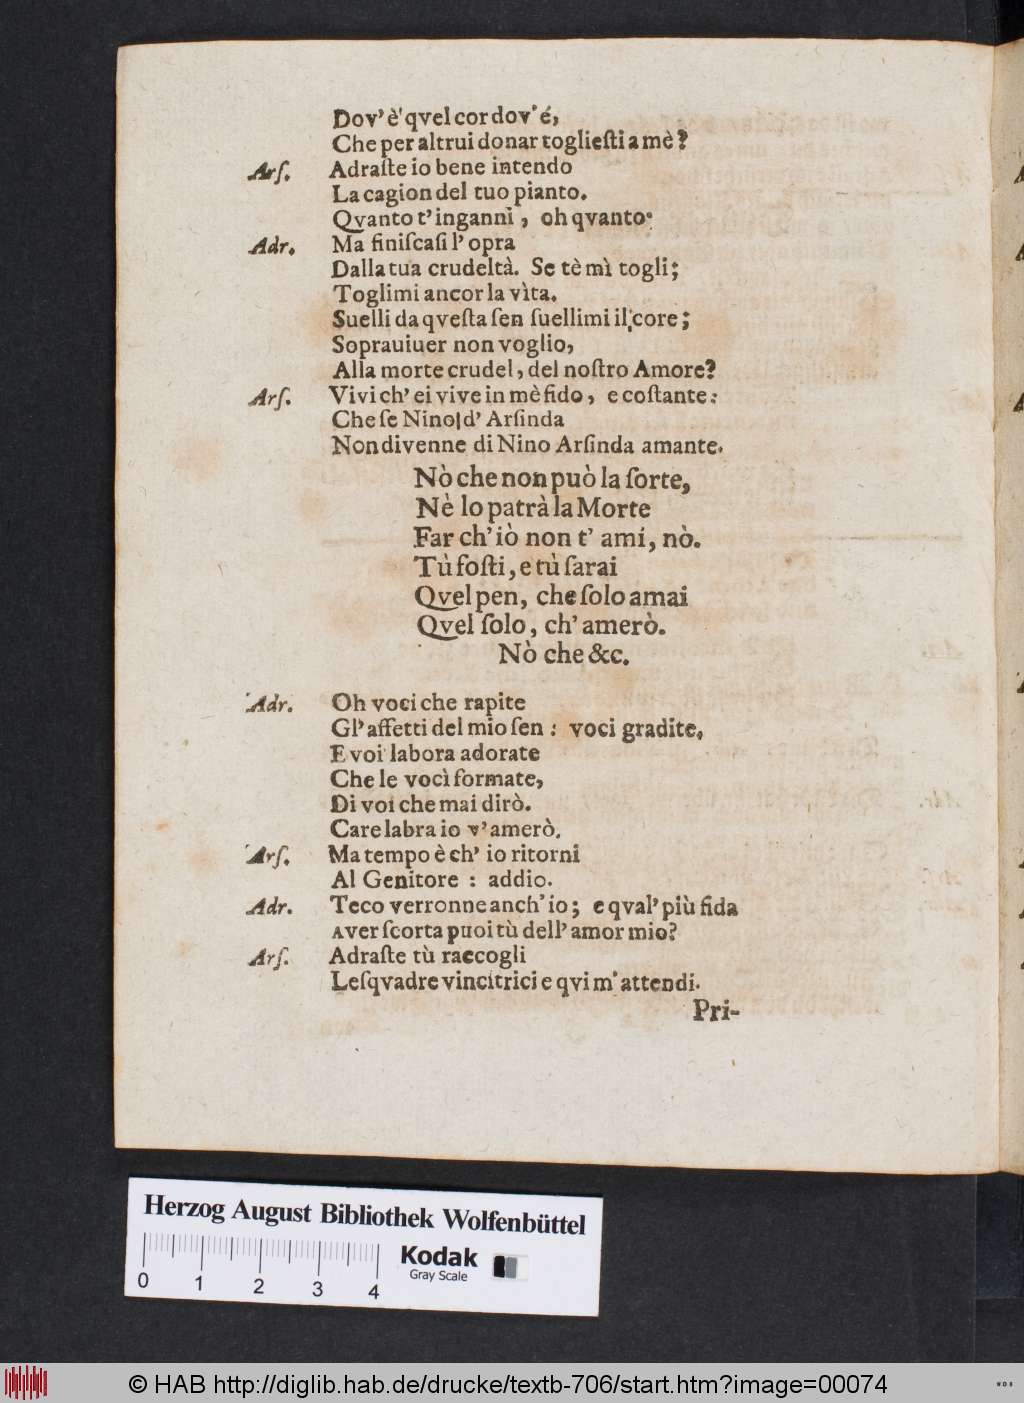 Dov' è' qvel cor dov' é,
Che per altrui donar togliesti a mè?
Arſ. Adraſte io bene intendo
La cagion del tuo pianto.
Qvanto t' inganni, oh qvanto.
Adr. Ma finiſcaſi l' opra
Dalla tua crudeltà. Se tè mì togli;
Toglimi ancor la vìta.
Suelli da qveſta ſen ſuellimi il core;
Soprauiuer non voglio,
Alla morte crudel, del noſtro Amore?
Arſ. Vivi ch' ei vive in mè fido, e coſtante:
Che ſe Nino d' Arſinda
Non divenne di Nino Arſinda amante.
Nò che non può la ſorte,
Nè lo patrà la Morte
Far ch' iò non t' ami, nò.
Tù foſti, e tù ſarai
Qvel pen, che ſolo amai
Qvel ſolo, ch' amerò.
Nò che &c.
Adr. Oh voci che rapite
Gl' affetti del mio ſen: voci gradite,
E voi labora adorate
Che le vocì formate,
Di voi che mai dirò.
Care labra io v' amerò.
Arſ. Ma tempo è ch' io ritorni
Al Genitore : addio.
Adr. Teco verronne anch' io; e qval' più fida
Aver ſcorta puoi tù dell' amor mio?
Arſ. Adraſte tù raccogli
Le ſqvadre vincitrici e qvi m' attendi.
Pri-
Herzog August Bibliothek Wolfenbüttel
0 1 2 3 4
Kodak
Gray Scale
© HAB http://diglib.hab.de/drucke/textb-706/start.htm?image=00074